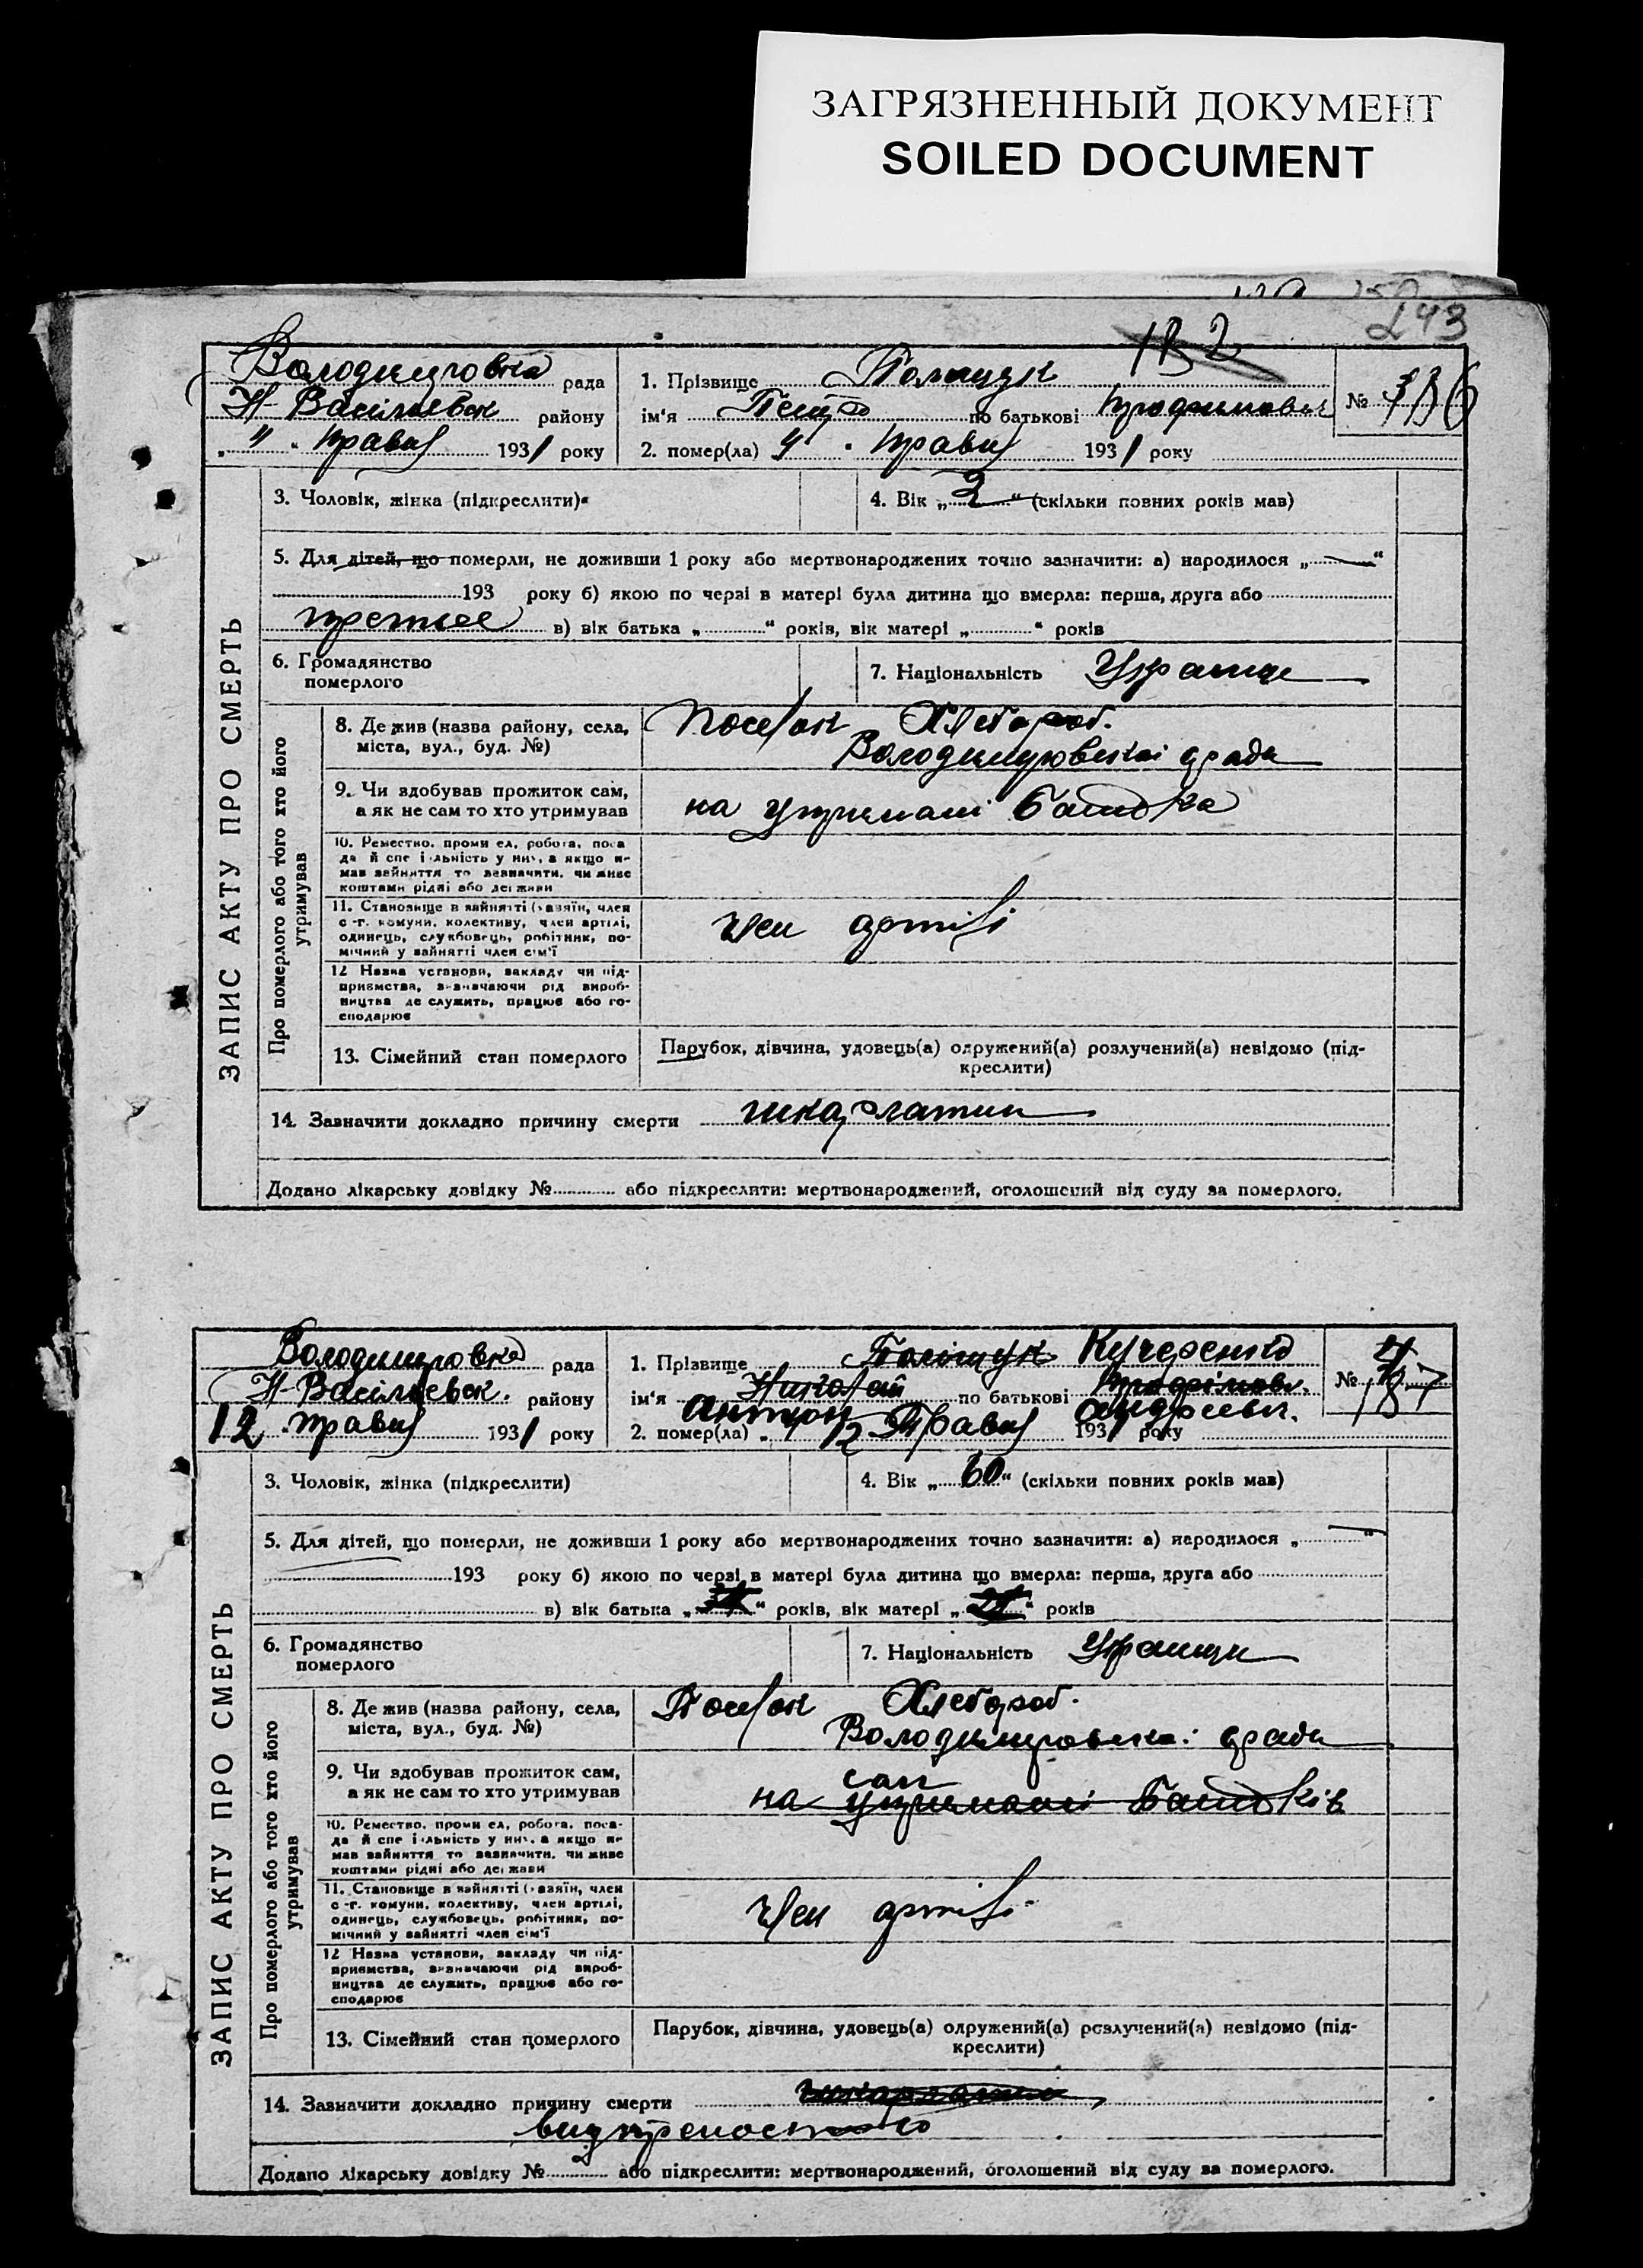 ЗАГРЯЗНЕННЫЙ ДОКУМЕНТ
SOILED DOCUMENT
243
Володимировка рада
Н-Васильевск району
"4" травня 1931 року
1. Прізвище Полищук
ім'я Петро по батькові Трофимович
2. помер(ла) 4 травня 1931 року
№
ЗАПИС АКТУ ПРО СМЕРТЬ
3. Чоловік, жінка (підкреслити)
4. Вік „2" (скільки повних років мав)
5. Для дітей, що померли, не доживши 1 року або мертвонароджених точно зазначити: а) народилося „ "
193 року б) якою по черзі в матері була дитина що вмерла: перша, друга або
третьее в) вік батька „ " років, вік матері „ " років
6. Громадянство
померлого
7. Національність Украинце
Про померлого або того хто його
утримував
8. Де жив (назва району, села,
міста, вул., буд. №)
Поселок Хлебороб.
Володимировскаі ради
9. Чи здобував прожиток сам,
а як не сам то хто утримував
на утримані батька
10. Ремество, проми ел, робота, поса
да й спе і льність у них, а якщо не
мав зайняття то зазначити, чи живе
коштами рідні або держави
11. Становище в зайнятті (хазяїн, член
с -г. комуни, колективу, член артілі,
одинець, службовець, робітник, по-
мічний у зайнятті член сім'ї
член артилі
12 Назва установи, закладу чи під-
приємства, зазначаючи рід вироб-
ництва де служить, працює або го-
сподарює
13. Сімейний стан померлого
Парубок, дівчина, удовець(а) одружений(а) розлучений(а) невідомо (під-
креслити)
14. Зазначити докладно причину смерти шкарлатин
Додано лікарську довідку № або підкреслити: мертвонароджений, оголошений від суду за померлого.
Володимировка рада
Н-Васільевск. району
12 травня 1931 року
1. Прізвище Поліщук Кучеренко
ім'я Николай по батькові Трофімов.
Антон Андреевич.
2. помер(ла) „ 4 12 Травня 1931 року
№ 187
ЗАПИС АКТУ ПРО СМЕРТЬ
3. Чоловік, жінка (підкреслити)
4. Вік „60" (скільки повних років мав)
5. Для дітей, що померли, не доживши 1 року або мертвонароджених точно зазначити: а) народилося „ "
193 року б) якою по черзі в матері була дитина що вмерла: перша, друга або
в) вік батька „ " років, вік матері „ " років
6. Громадянство
померлого
7. Національність Украинци
Про померлого або того хто його
утримував
8. Де жив (назва району, села,
міста, вул., буд. №)
Поселок Хлебороб.
Володимировска: ради
9. Чи здобував прожиток сам,
а як не сам то хто утримував
сам
на утримані батьків
10. Ремество, проми ел, робота, поса-
да й спе і льність у них, а якщо не
мав зайняття то зазначити, чи живе
коштами рідні або держави
11. Становище в зайнятті (хазяїн, член
с -г. комуни, колективу, член артілі,
одинець, службовець, робітник, по-
мічний у зайнятті член сім'ї
член артилі
12 Назва установи, закладу чи під-
приємства, зазначаючи рід вироб-
ництва де служить, працює або го-
сподарює
13. Сімейний стан померлого
Парубок, дівчина, удовець(а) одружений(а) розлучений(а) невідомо (під-
креслити)
14. Зазначити докладно причину смерти шкарлатин
Додано лікарську довідку № або підкреслити: мертвонароджений, оголошений від суду за померлого.